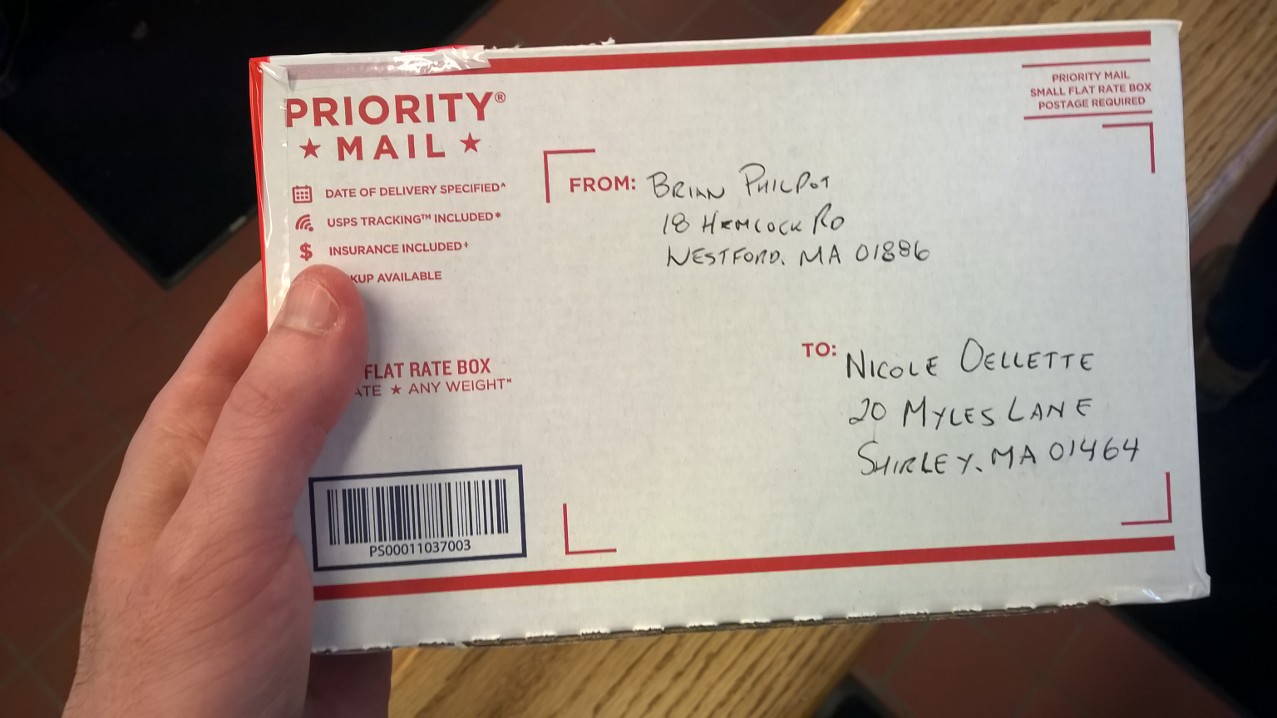 PRIORITY®
★ MAIL ★
DATE OF DELIVERY SPECIFIED^
USPS TRACKING™ INCLUDED*
$ INSURANCE INCLUDED+
KUP AVAILABLE
FLAT RATE BOX
ATE ★ ANY WEIGHT*
PS00011037003
PRIORITY MAIL
SMALL FLAT RATE BOX
POSTAGE REQUIRED
FROM: BRIAN PHILPOT
18 HEMLOCK RD
WESTFORD, MA 01886
TO: NICOLE OELLETTE
20 MYLES LANE
SHIRLEY, MA 01464